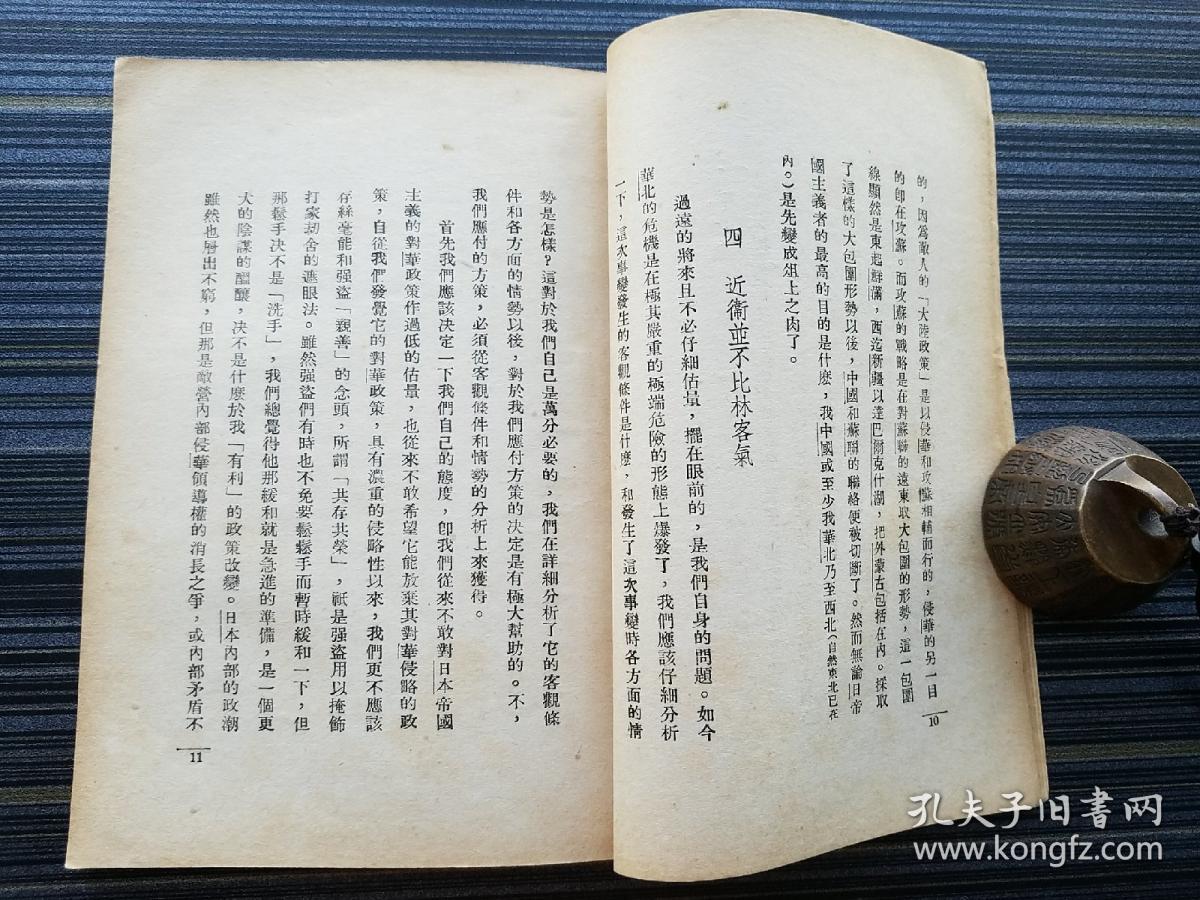 的,因爲敵人的「大陸政策」是以侵華和攻蘇相輔而行的,侵華的另一目
的卽在攻蘇。而攻蘇的戰略是在對蘇聯的遠東取大包圍的形勢,這一包圍
線顯然是東起鮮滿,西迄新疆以達巴爾克什湖,把外蒙古包括在內。採取
了這樣的大包圍形勢以後,中國和蘇聯的聯絡便被切斷了。然而無論日帝
國主義者的最高的目的是什麽,我中國或至少我華北乃至西北(自然東北已在
內。)是先變成俎上之肉了。
四 近衞並不比林客氣
過遠的將來且不必仔細估量,擺在眼前的,是我們自身的問題。如今
華北的危機是在極其嚴重的極端危險的形態上爆發了,我們應該仔細分析
一下,這次事變發生的客觀條件是什麽,和發生了這次事變時各方面的情
10
勢是怎樣?這對於我們自己是萬分必要的,我們在詳細分析了它的客觀條
件和各方面的情勢以後,對於我們應付方策的決定是有極大幫助的。不,
我們應付的方策,必須從客觀條件和情勢的分析上來獲得。
首先我們應該決定一下我們自己的態度,卽我們從來不敢對日本帝國
主義的對華政策作過低的估量,也從來不敢希望它能放棄其對華侵略的政
策,自從我們發覺它的對華政策,具有濃重的侵略性以來,我們更不應該
存絲毫能和强盜「親善」的念頭,所謂「共存共榮」,祇是强盜用以掩飾
打家刼舍的遮眼法。雖然强盜們有時也不免要鬆鬆手而暫時緩和一下,但
那鬆手決不是「洗手」,我們總覺得他那緩和就是急進的準備,是一個更
大的陰謀的醞釀,決不是什麽於我「有利」的政策改變。日本內部的政潮
雖然也層出不窮,但那是敵營內部侵華領導權的消長之爭,或內部矛盾不
11
孔夫子旧书网
www.kongfz.com